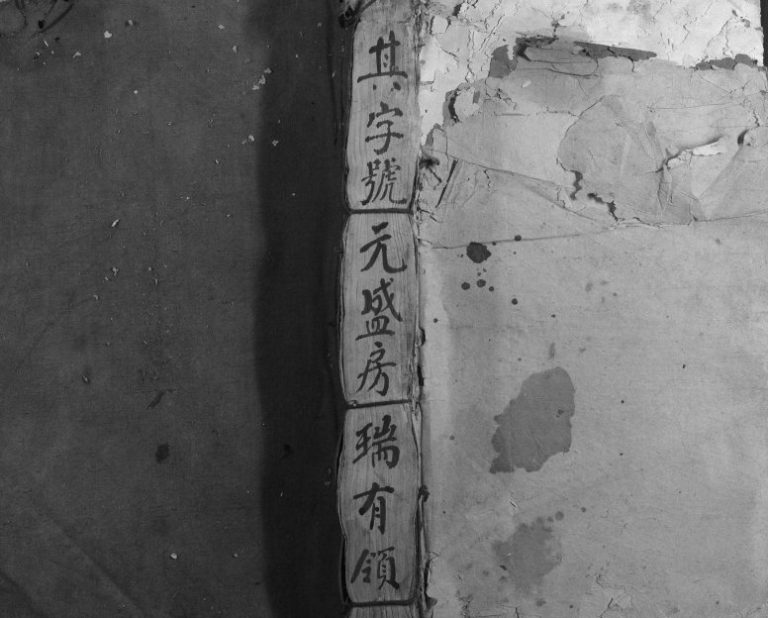 其字號元盛房瑞有領